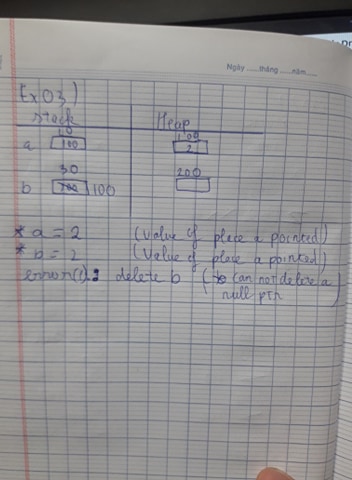 Ngày ..... tháng ..... năm .....
Ex03)
stack Heap
10 100
a 100 2
30 200
b 100
* a = 2 (value of place a pointed)
* b = 2 (Value of place a pointed)
error(1): delete b (can not delete a
null ptr